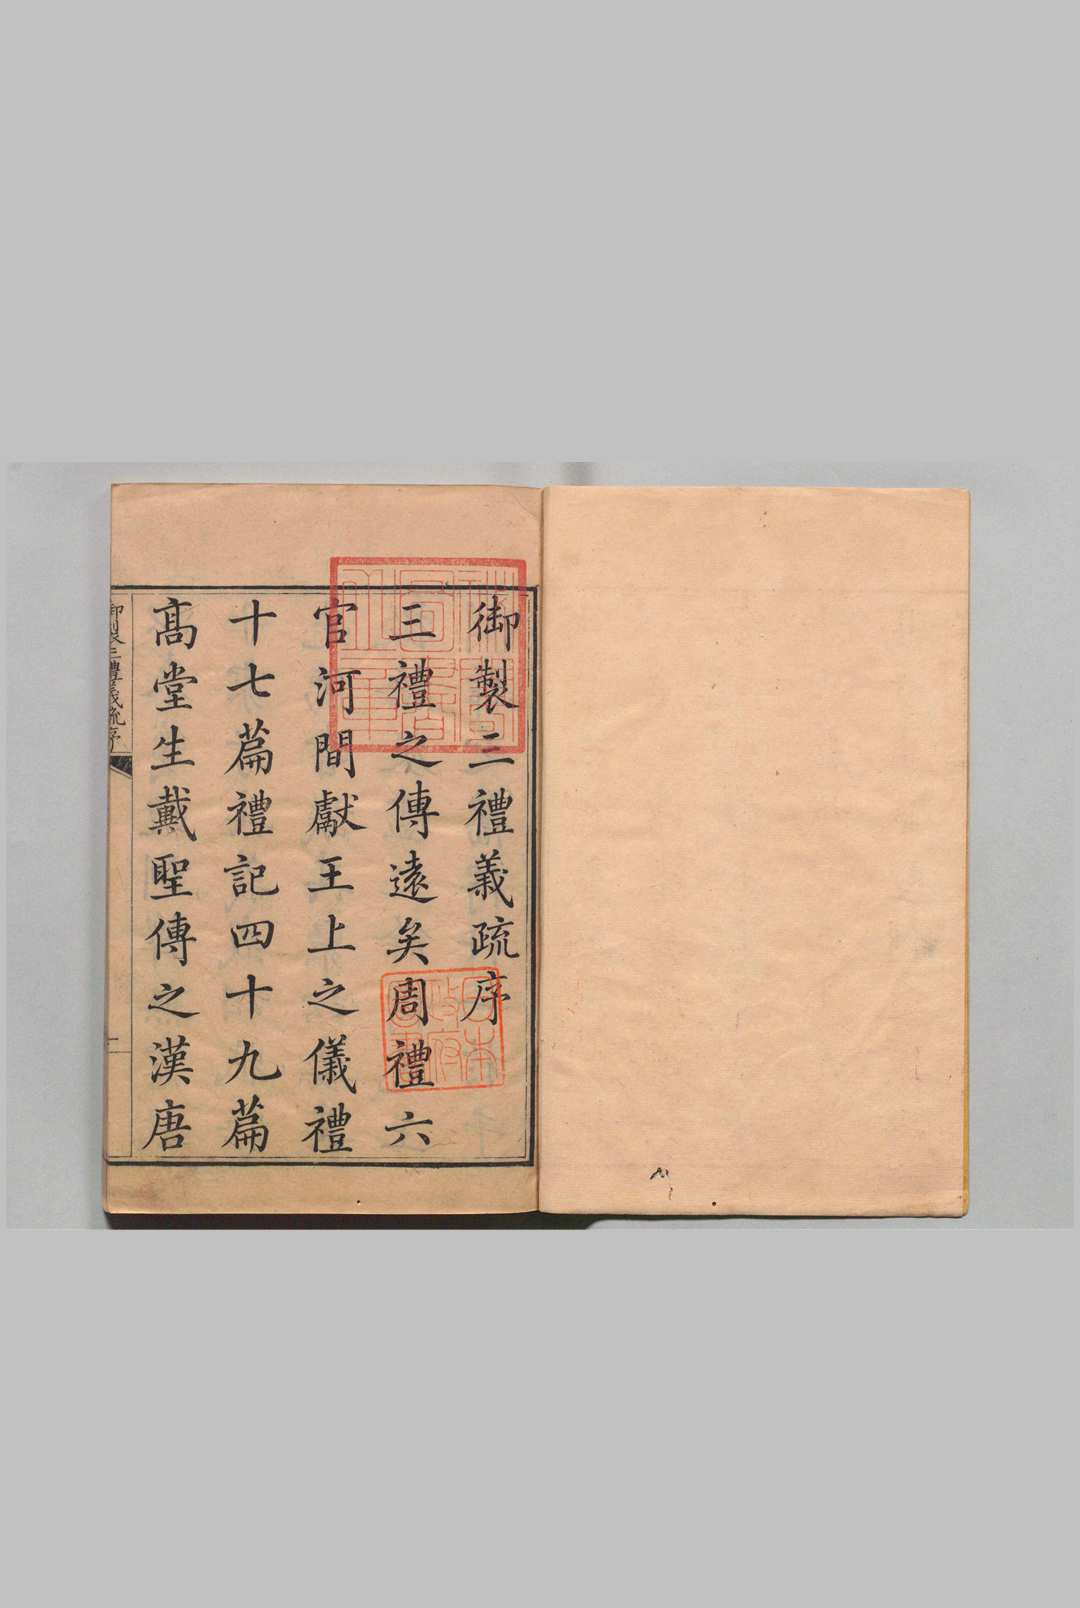 御製三禮義疏序
三禮之傳遠矣周禮六
官河間獻王上之儀禮
十七篇禮記四十九篇
髙堂生戴聖傳之漢唐
御製三禮義疏序
一
日本
政府
圖書